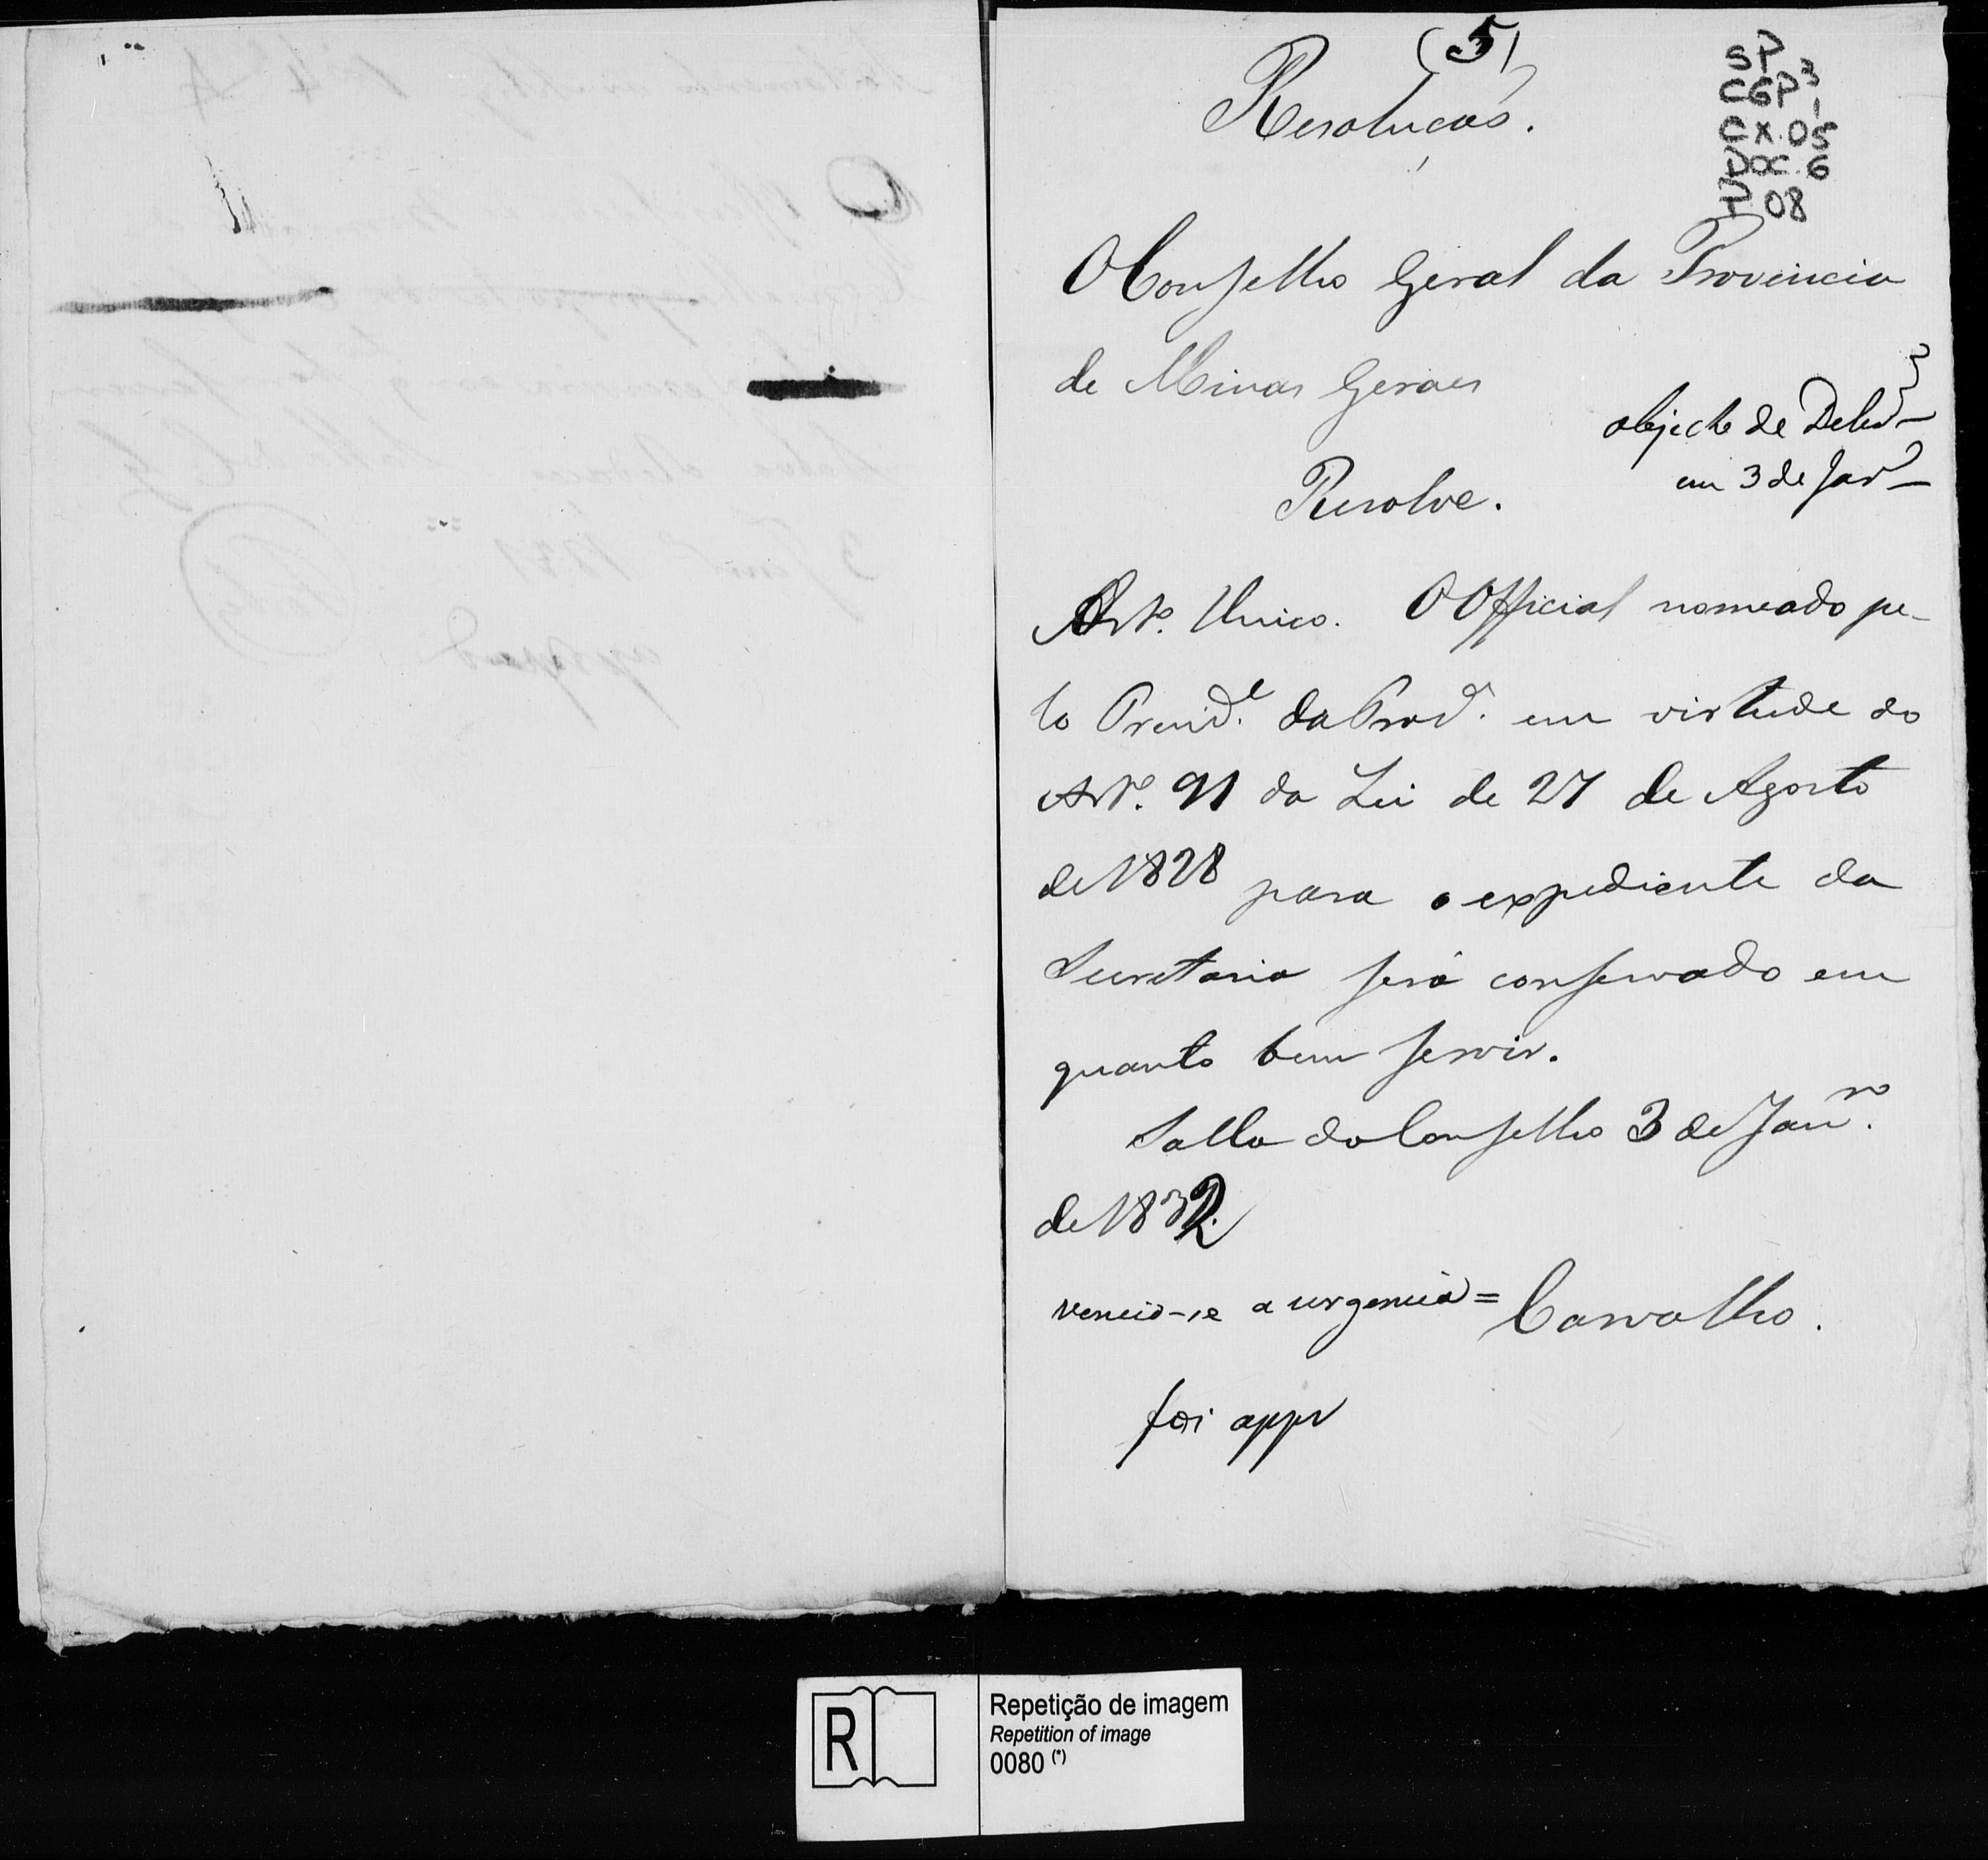 (5)
Resolução.
SP
CGP³ 1
CX.05
DOC.6
P.08
O Conselho Geral da Provincia
de Minas Geraes
objecto de Delib
em 3 de Janr
Resolve.
Art. Unico. O Official nomeado pe-
lo Presid.e da Prov.a em virtude do
Art. 91 da Lei de 27 de Agosto
de 1828 para o expediente da
Secretaria será conservado em
quanto bem servir.
Salla do Conselho 3 de Janr.o
de 1832.
venceo-se a urgencia = Carvalho.
foi appr
R
Repetição de imagem
Repetition of image
0080 (*)